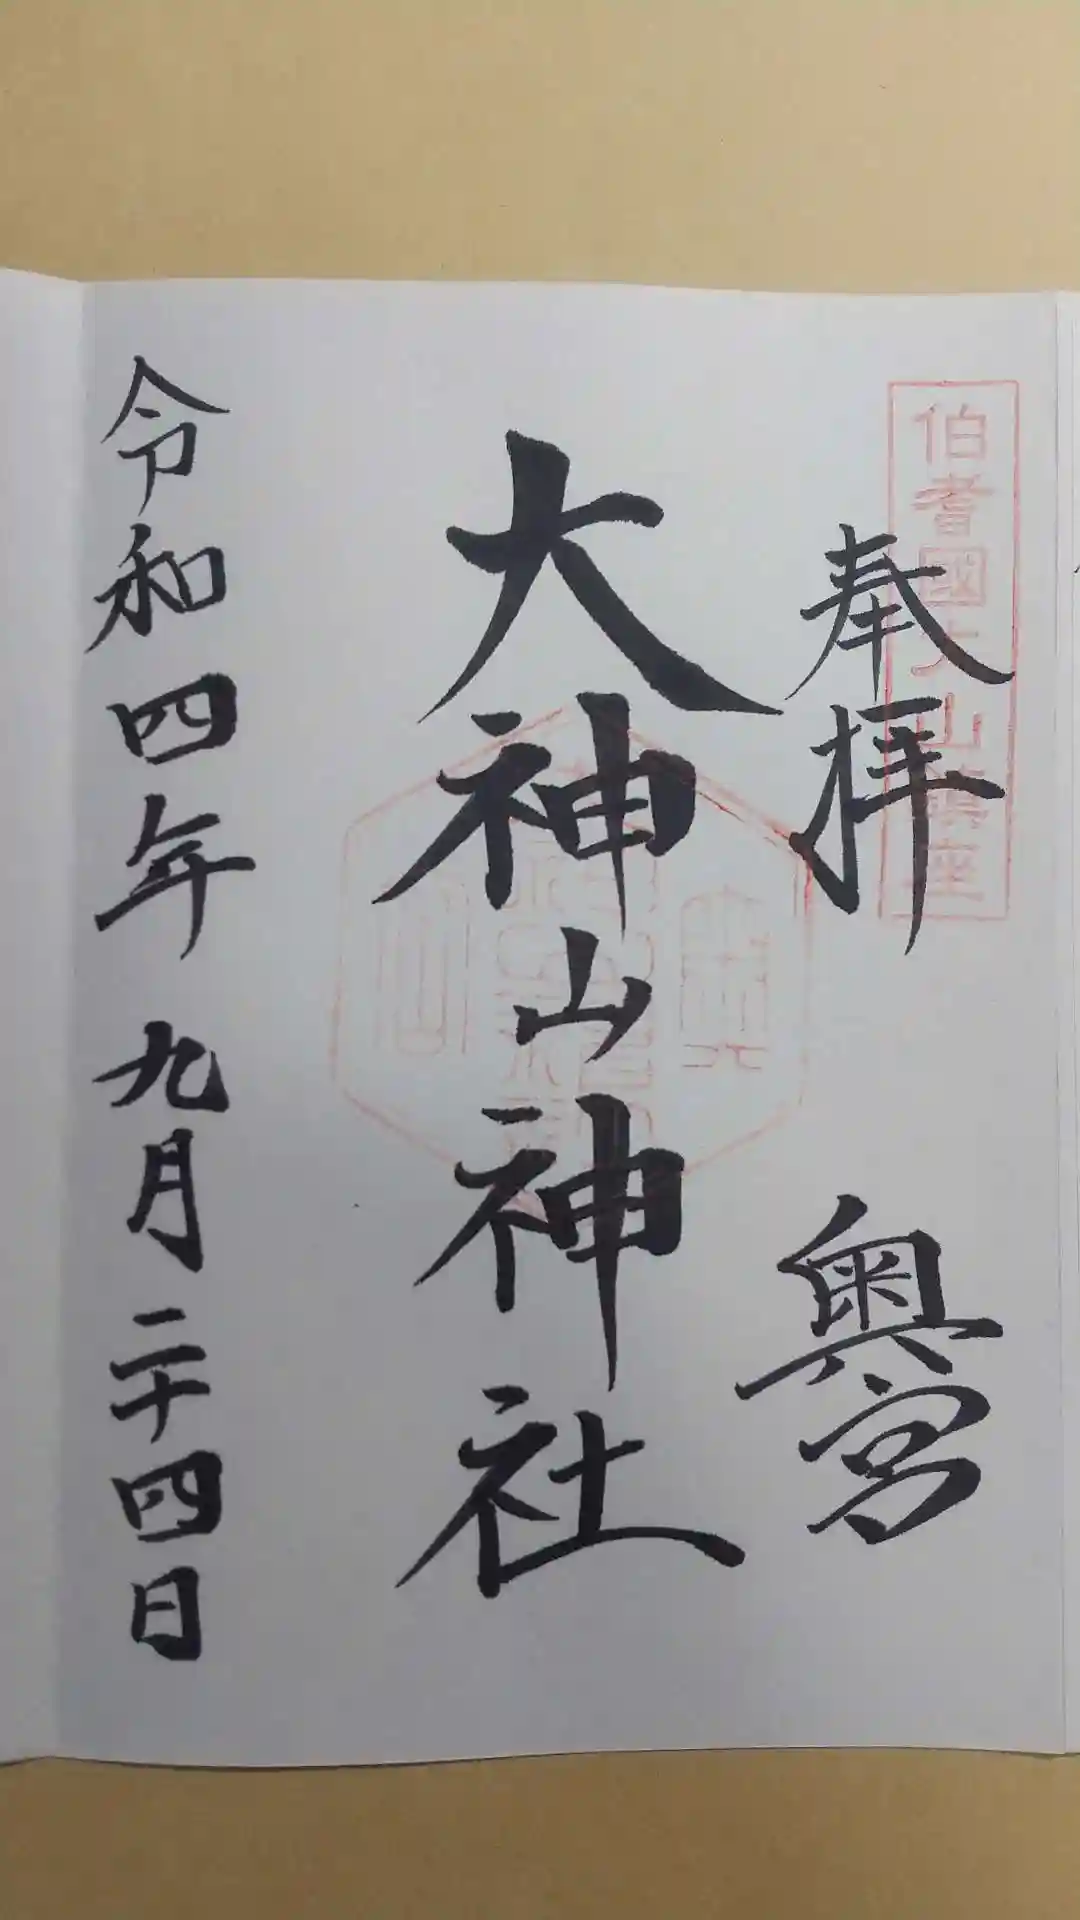 伯耆國大山鎮座
奉拝
奥宮
大神山神社
令和四年九月二十四日